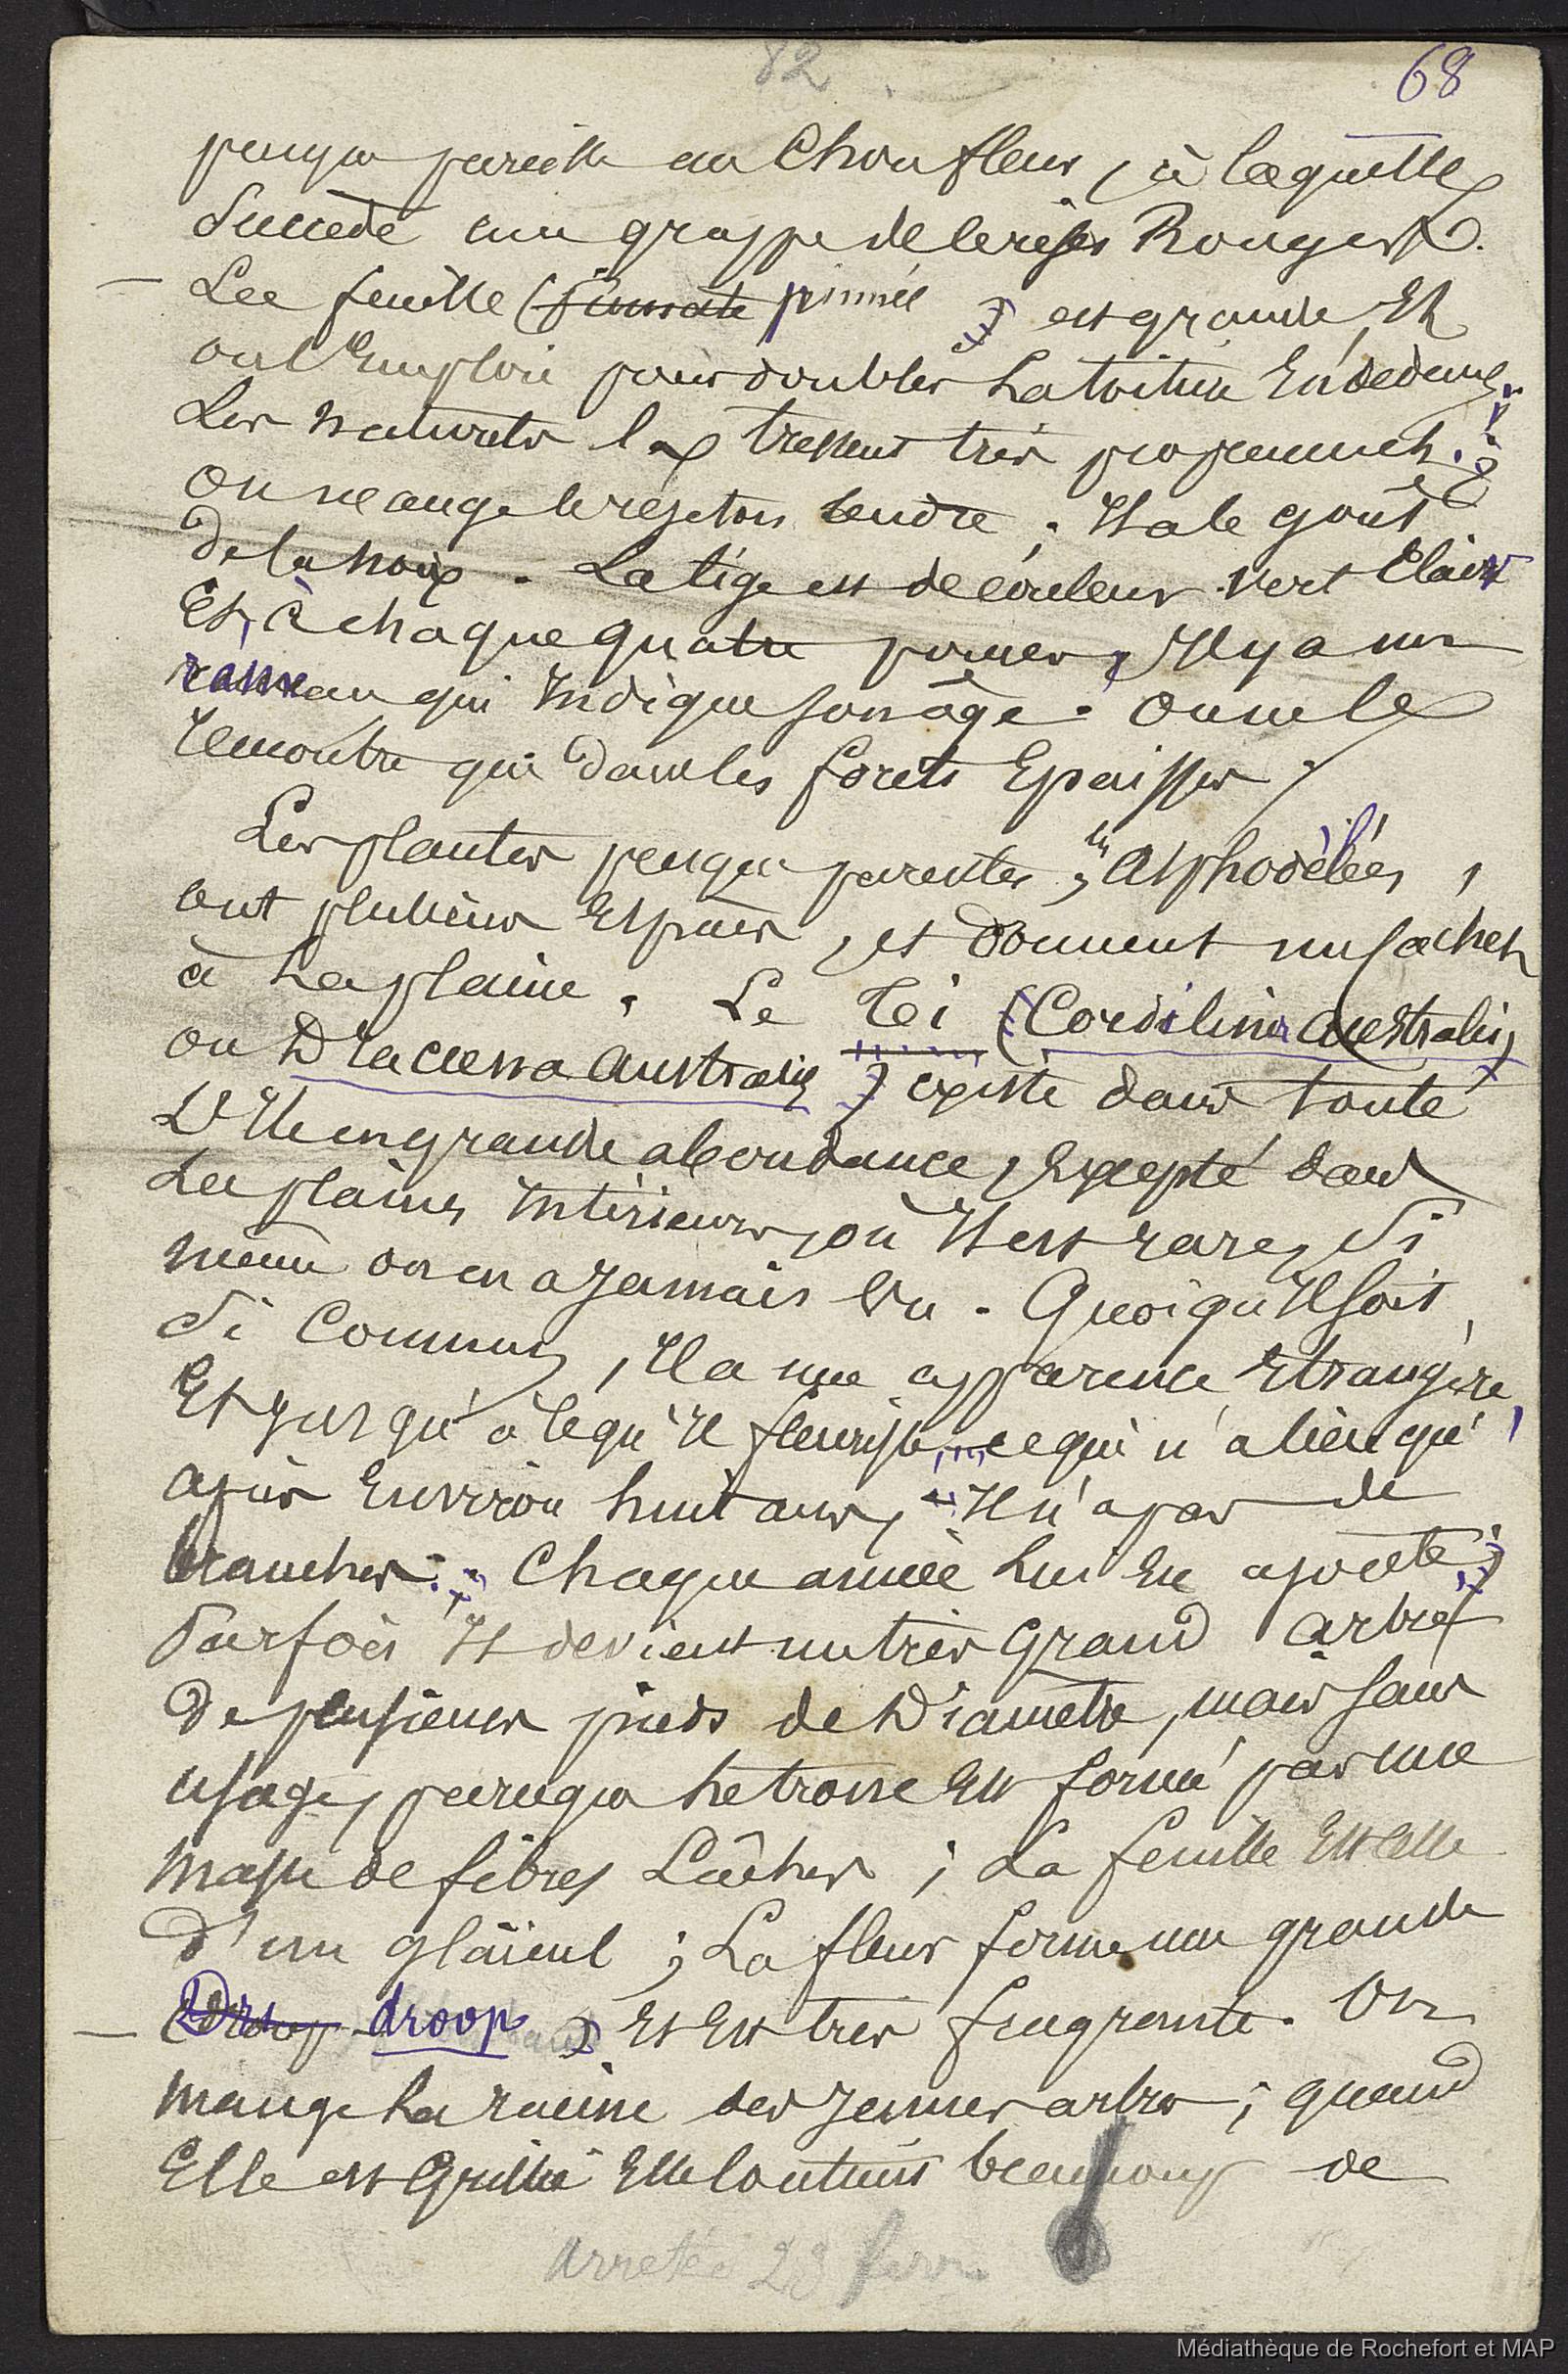 82
68
presque pareille au Choufleur, à laquelle
succède une grappe de cerises Rouges.
— La feuille (pinnée) est grande, Et
on l'Emploie pour doubler La toiture En dedans;
Les naturels la tressent très proprement;
On mange le rejeton tendre; Il a le goût
de la noix. La tige est de couleur vert Clair
Et, à chaque quatre pouces, Il y a un
rameau qui Indique son âge. On ne le
rencontre que dans les forêts Epaisses.
Les plantes presque parentes, les Asphodélées,
ont plusieurs Espèces, et donnent un cachet
à La plaine. Le Ti (Cordiline Australis)
ou Dracaena Australis) existe dans toute
L'Ile en grande abondance, Excepté dans
Les plaines Intérieures, où Il est rare, Si
même on en a Jamais Vu. Quoiqu'Il soit
Si Commun, Il a une apparence Etrangère,
Et Jusqu'à ce qu'Il fleurisse, ce qui n'a lieu qu'
après Environ huit ans, Il n'a pas de
branches. Chaque année Lui En ajoute;
Parfois Il devient un très Grand arbre
De plusieurs pieds de Diamètre, mais sans
usage, parce que Le tronc Est formé par une
Masse de fibres Lâches; La feuille Est celle
d'un glaïeul; La fleur forme une grande
— droop) Et Est très fragrante. On
Mange La racine des Jeunes arbres; quand
Elle est Grillée Elle Contient beaucoup de
Arretée 28 fevr.
Médiathèque de Rochefort et MAP